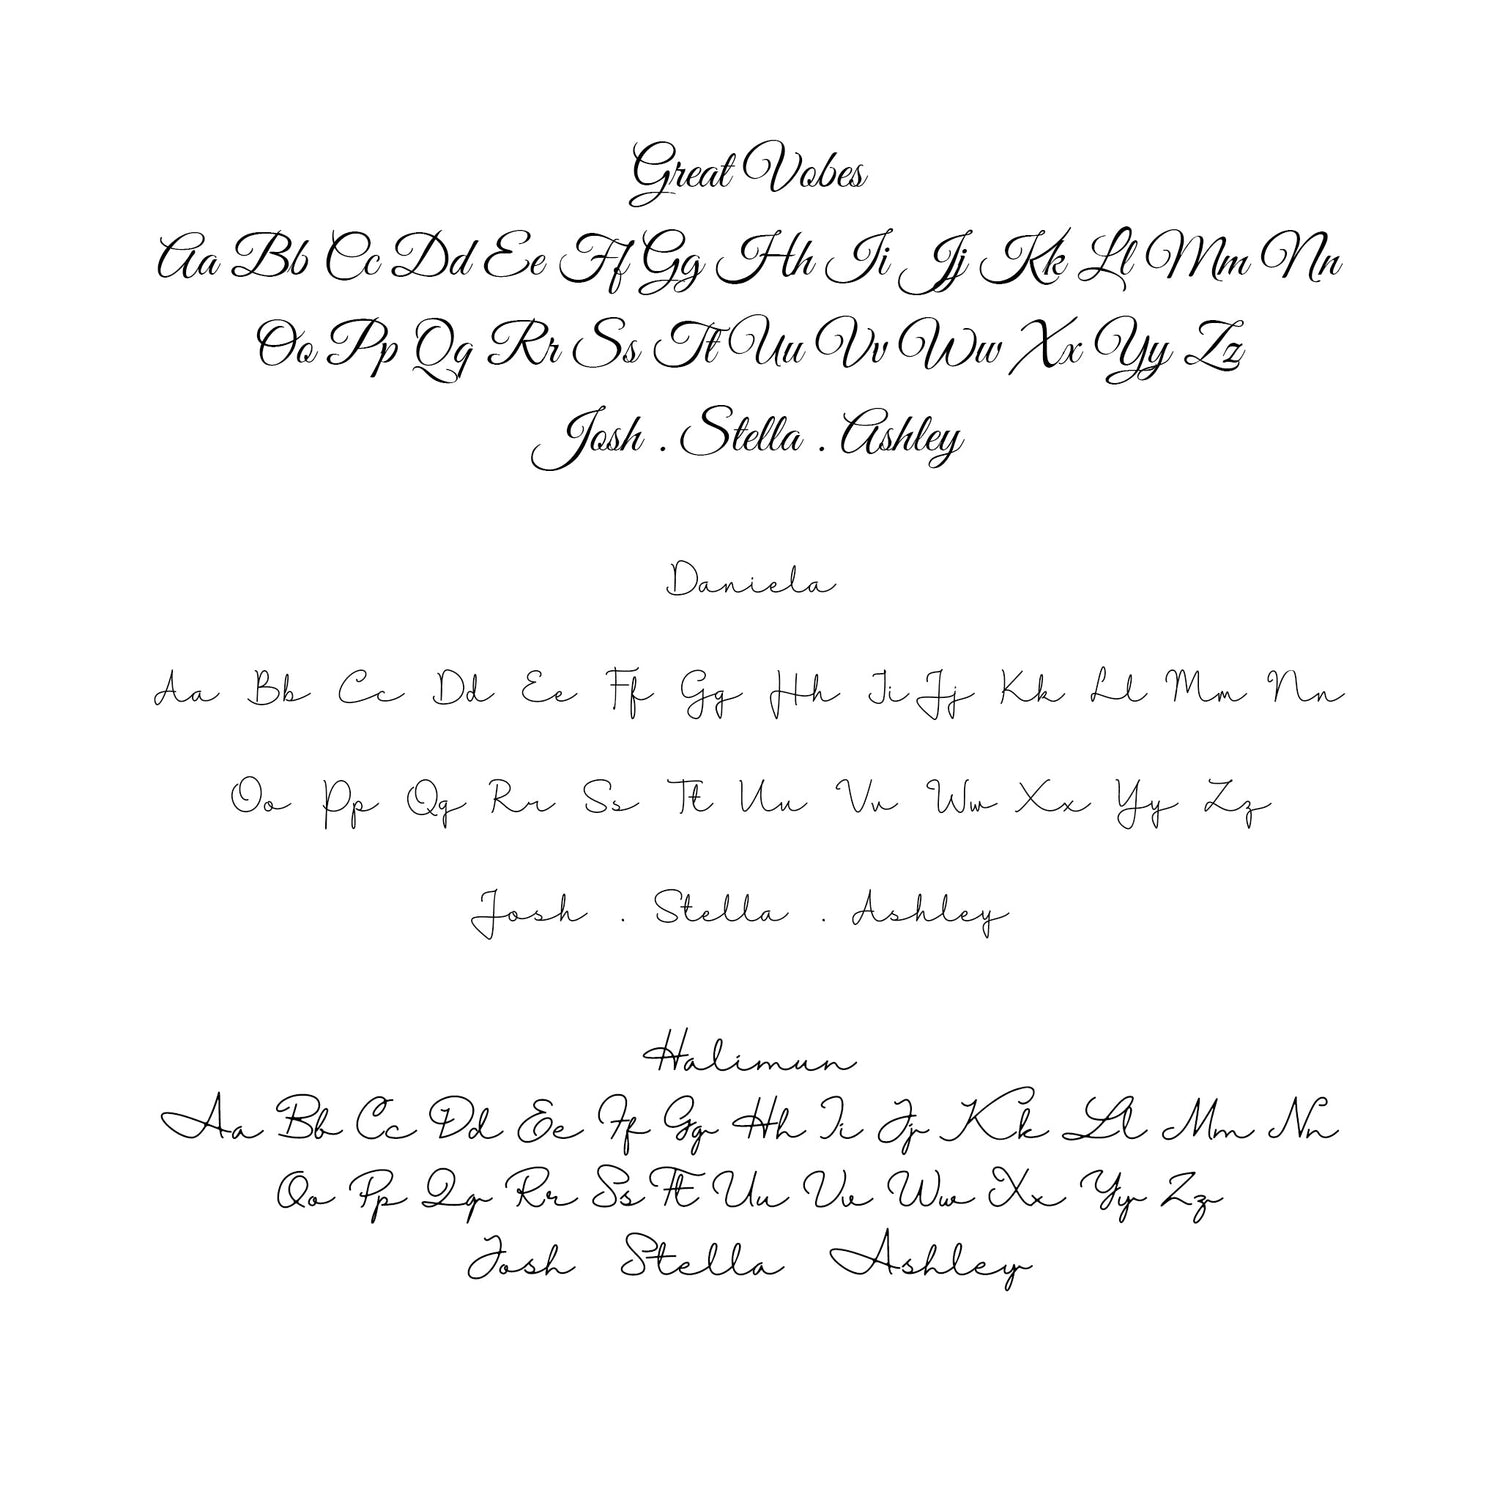 Great Vobes
Aa Bb Cc Dd Ee Ff Gg Hh Ii Jj Kk Ll Mm Nn
Oo Pp Qq Rr Ss Tt Uu Vv Ww Xx Yy Zz
Josh . Stella . Ashley
Daniela
Aa Bb Cc Dd Ee Ff Gg Hh Ii Jj Kk Ll Mm Nn
Oo Pp Qq Rr Ss Tt Uu Vv Ww Xx Yy Zz
Josh . Stella . Ashley
Halimun
Aa Bb Cc Dd Ee Ff Gg Hh Ii Jj Kk Ll Mm Nn
Oo Pp Qq Rr Ss Tt Uu Vv Ww Xx Yy Zz
Josh Stella Ashley